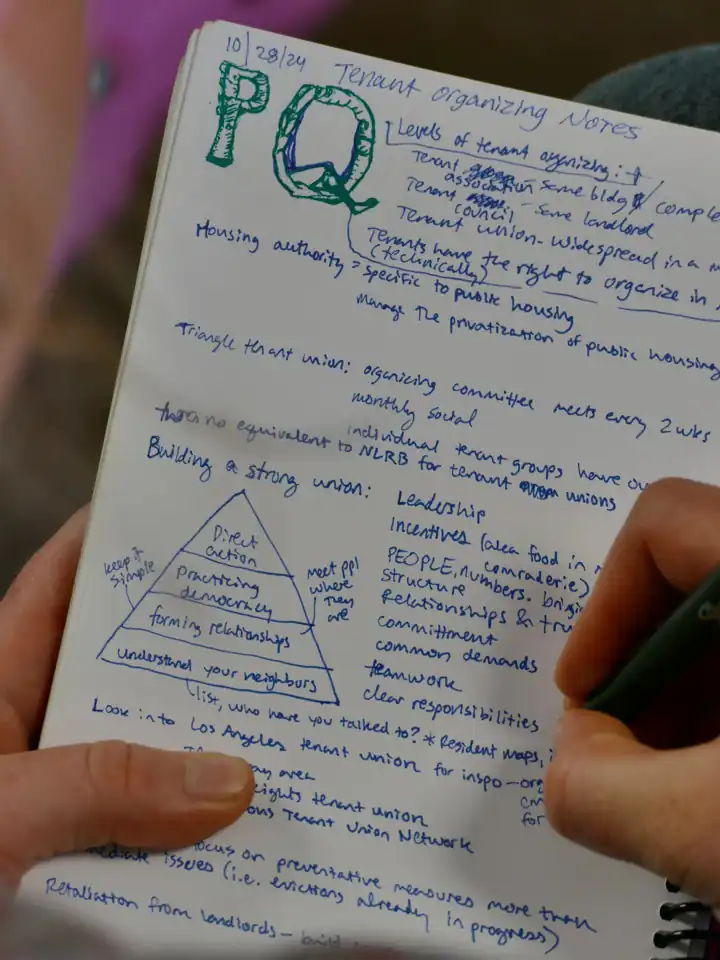 10/28/24 Tenant Organizing Notes
PQ
Levels of tenant organizing:
Tenant association - same bldg
Tenant council - same landlord
Tenant union - widespread in a
Tenants have the right to organize in
(technically)
Housing authority = specific to public housing
manage the privatization of public housing
Triangle tenant union: organizing committee meets every 2 wks
monthly social
individual tenant groups have
no equivalent to NLRB for tenant unions
Building a strong union:
Leadership
Incentives (aka food in
comraderie)
PEOPLE, numbers.
structure
Relationships &
committment
common demands
teamwork
clear responsibilities
Direct
action
Practicing
democracy
forming relationships
understand your neighburs
keep it
simple
meet ppl
where
they
are
list, who have you talked to? * Resident maps,
Look into Los Angeles tenant union for inspo -
area
tenant union
Tenant Union Network
focus on preventative measures more than
issues (i.e. evictions already in progress)
Retaliation from landlords -